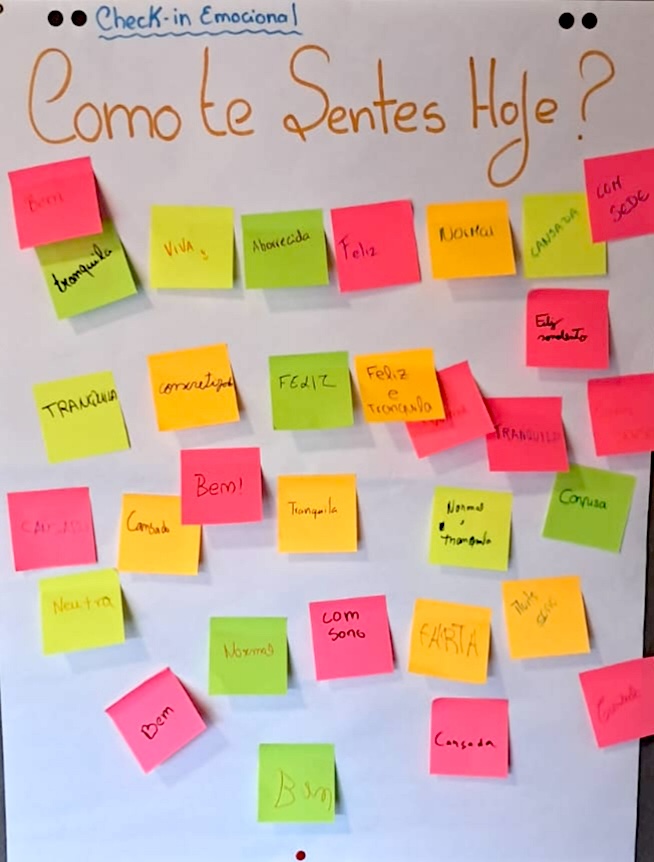 Check-in Emocional
Como te Sentes Hoje?
Bem
tranquila
VIVA
Aborrecida
Feliz
NORMAL
CANSADA
COM
SEDE
TRANQUILA
FELIZ
Feliz
e
Tranquila
TRANQUILA
Bem!
CANSADO
Cansado
Tranquila
Normal
e
tranquila
Confusa
Neutra
Normal
COM
SONO
FARTA
Bem
Cansada
Bem